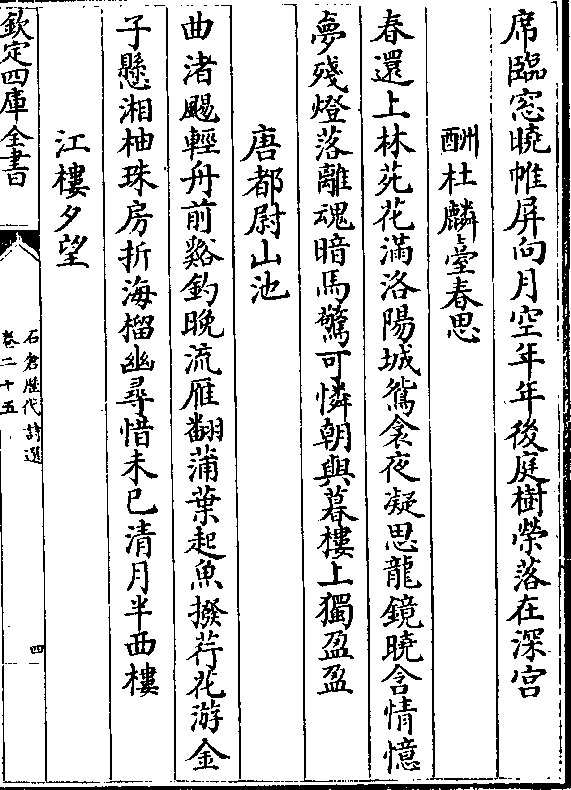 席臨窓曉帷屏向月空年年後庭樹榮落在深宫
酬杜麟臺春思
春還上林苑花滿洛陽城鴛衾夜凝思龍鏡曉含情憶
夢殘燈落離魂暗馬驚可憐朝與暮樓上獨盈盈
唐都尉山池
曲渚颺輕舟前谿釣晚流雁翻蒲葉起魚撥荇花游金
子懸湘柚珠房折海榴幽尋惜未已清月半西樓
江樓夕望
欽定四庫全書
石倉歷代詩選
卷二十五
四